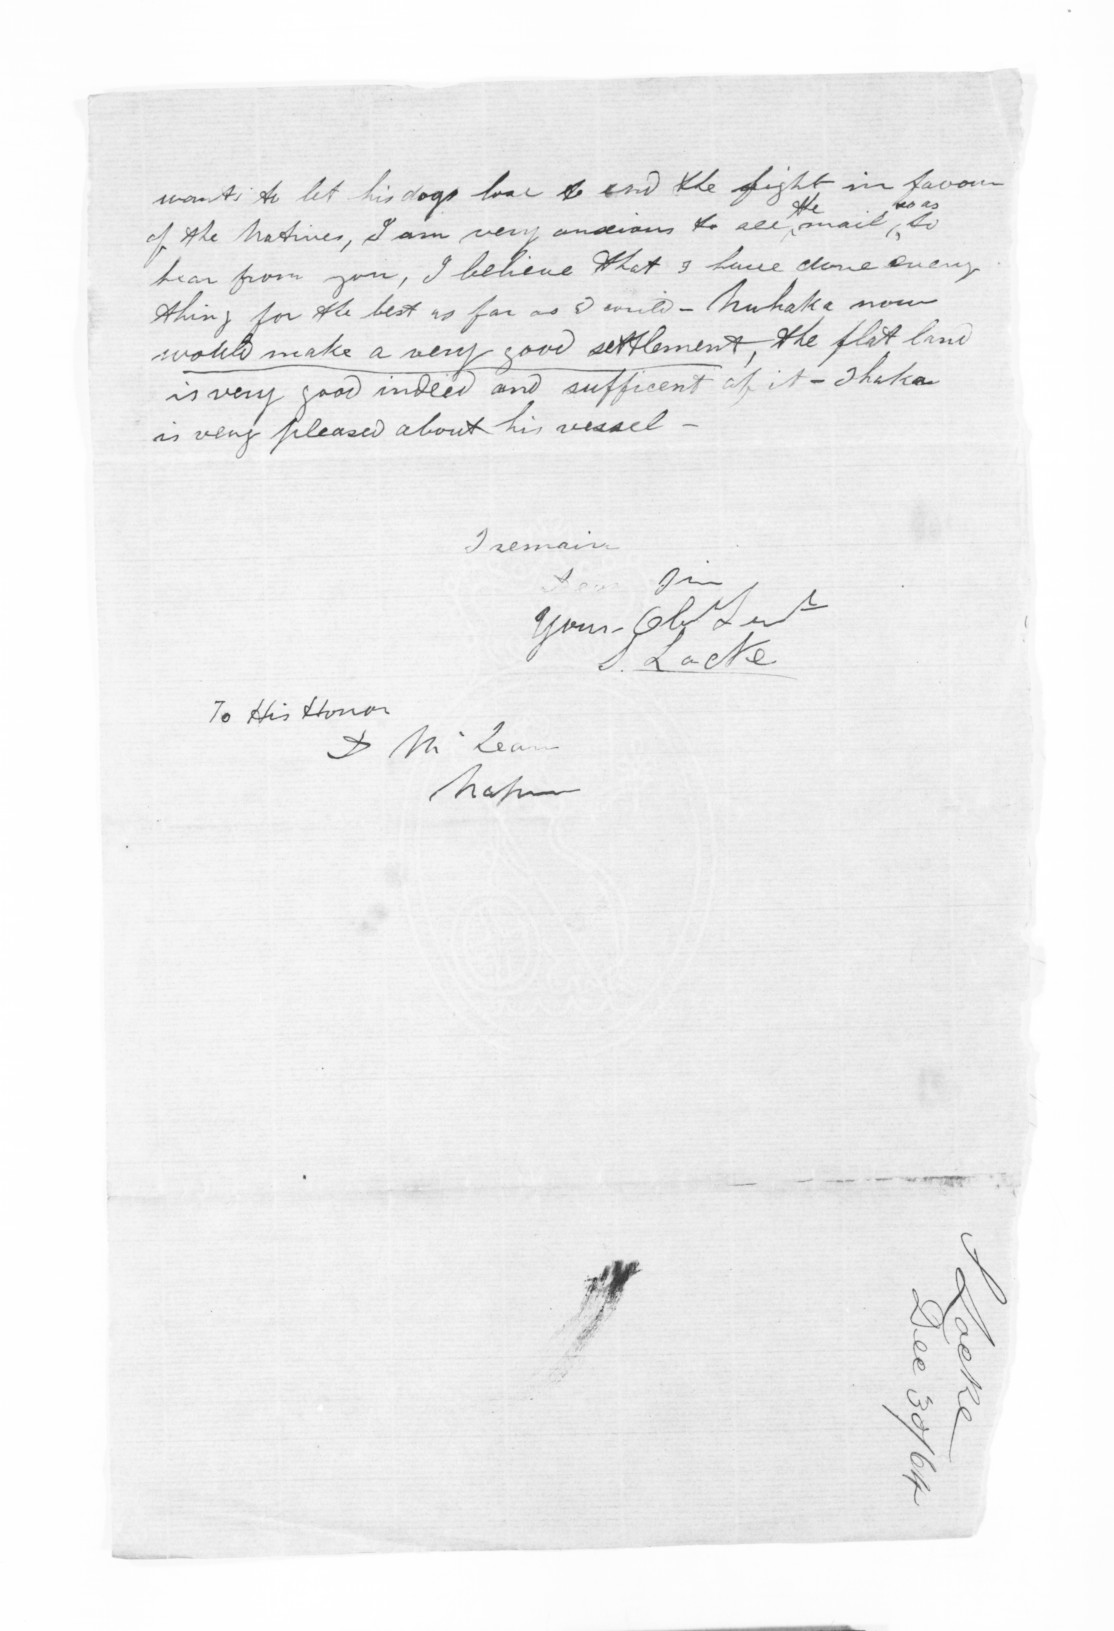 wants to let his dogs loae to end the fight in favour
of the Natives, I am very anxious to see the mail, so as to
hear from you, I believe that I have done every
thing for the best as far as I could - Nuhaka now
would make a very good settlement, the flat land
is very good indeed and sufficent of it - Ihaka
is very pleased about his vessel -
I remain
Dear Sir
Yours Obt Servt
S. Locke
To His Honor
D McLean
Napier
S Locke
Dec 30/64